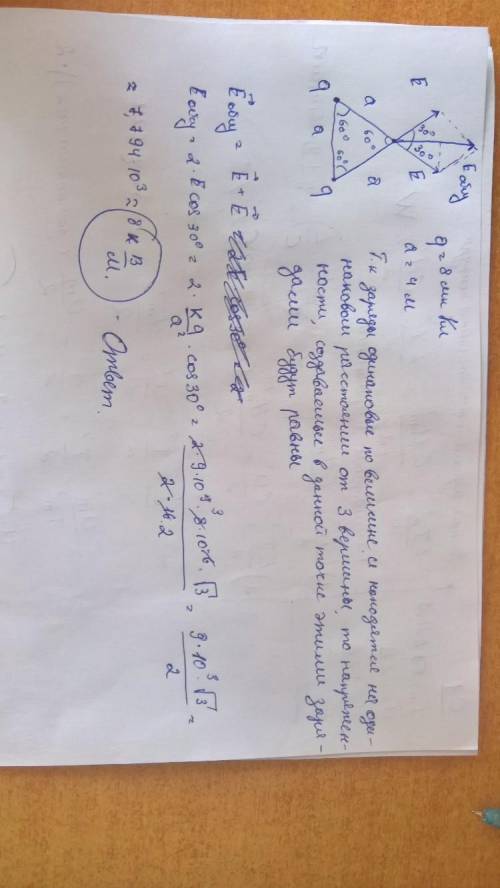 E
E общ
30°
30°
E
a
60°
a
q
60°
a
60°
q
q = 8 мк Кл
a = 4 м
Т.к заряды одинаковые по величине и находятся на оди-
наковом расстоянии от 3 вершины, то напряжен-
ности, создаваемые в данной точке этими заря-
дами будут равны
E⃗общ = E⃗ + E⃗
Eобщ = 2 · E cos 30° = 2 · kq/a² · cos 30° = 2·9·10⁹·8·10⁻⁶·√3 / 2·16·2 = 9·10³·√3 / 2 =
≈ 7,794·10³ ≈ 8 кВ/м. - Ответ.